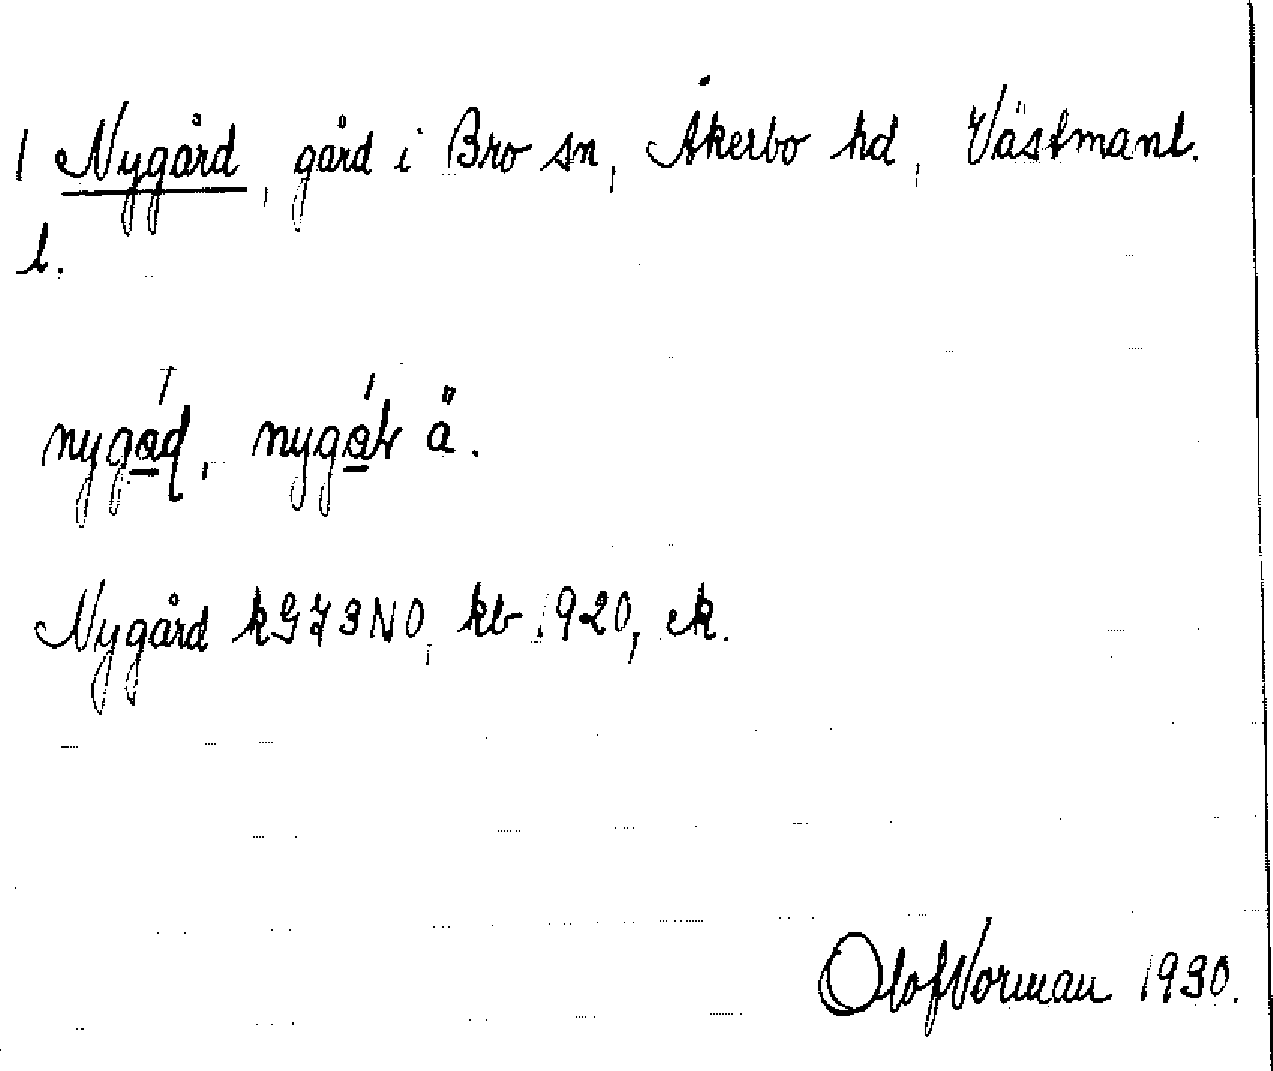 1 Nygård, gård i Bro sn, Åkerbo hd, Västmanl.
l.
nygád, nygár ä.
Nygård kGJ3NO, kb 1920, ek.
Olof Norman 1930.